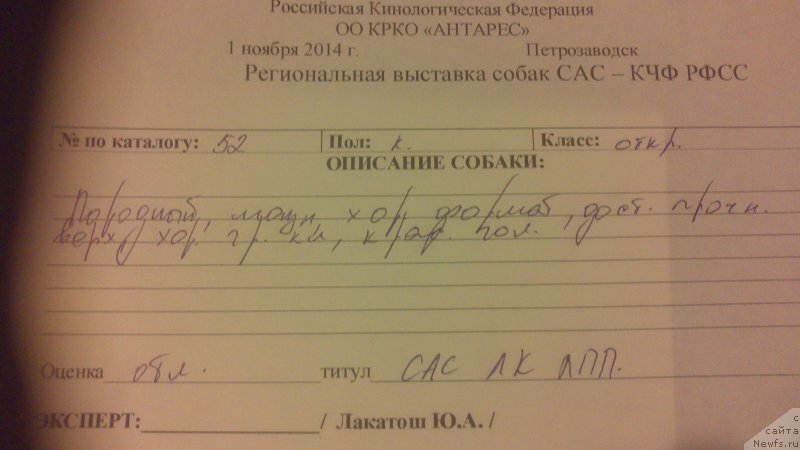 Российская Кинологическая Федерация
ОО КРКО «АНТАРЕС»
1 ноября 2014 г. Петрозаводск
Региональная выставка собак САС – КЧФ РФСС
№ по каталогу: 52 Пол: к. Класс: откр.
ОПИСАНИЕ СОБАКИ:
Породный, мощн, хор. формат, дост. прочн.
верх, хор. гр. кл, крас. гол.
Оценка отл. титул САС ЛК ЛПП.
ЭКСПЕРТ: / Лакатош Ю.А. /
с
сайта
Newfs.ru